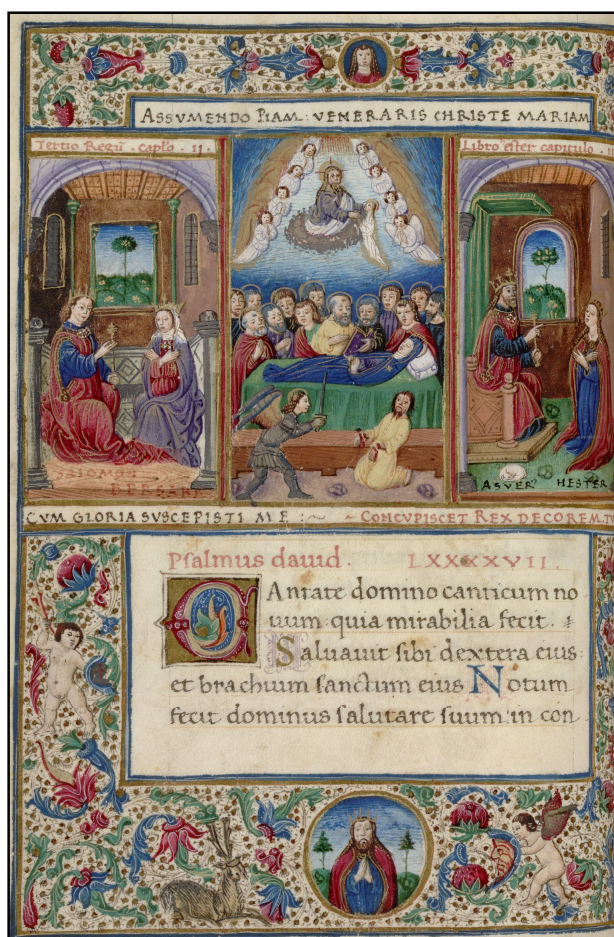 ASSVMENDO PIAM: VENERARIS CHRISTE MARIAM
Tertio Regũ . caplo . II .
Libro ester capitulo . II
ASVER
HESTER
CVM GLORIA SVSCEPISTI ME :~
CONCVPISCET REX DECOREM
Psalmus dauid. LXXXXVII.
CAntate domino canticum no
uum: quia mirabilia fecit.
Saluauit sibi dextera eius:
et brachium sanctum eius Notum
fecit dominus salutare suum: in con